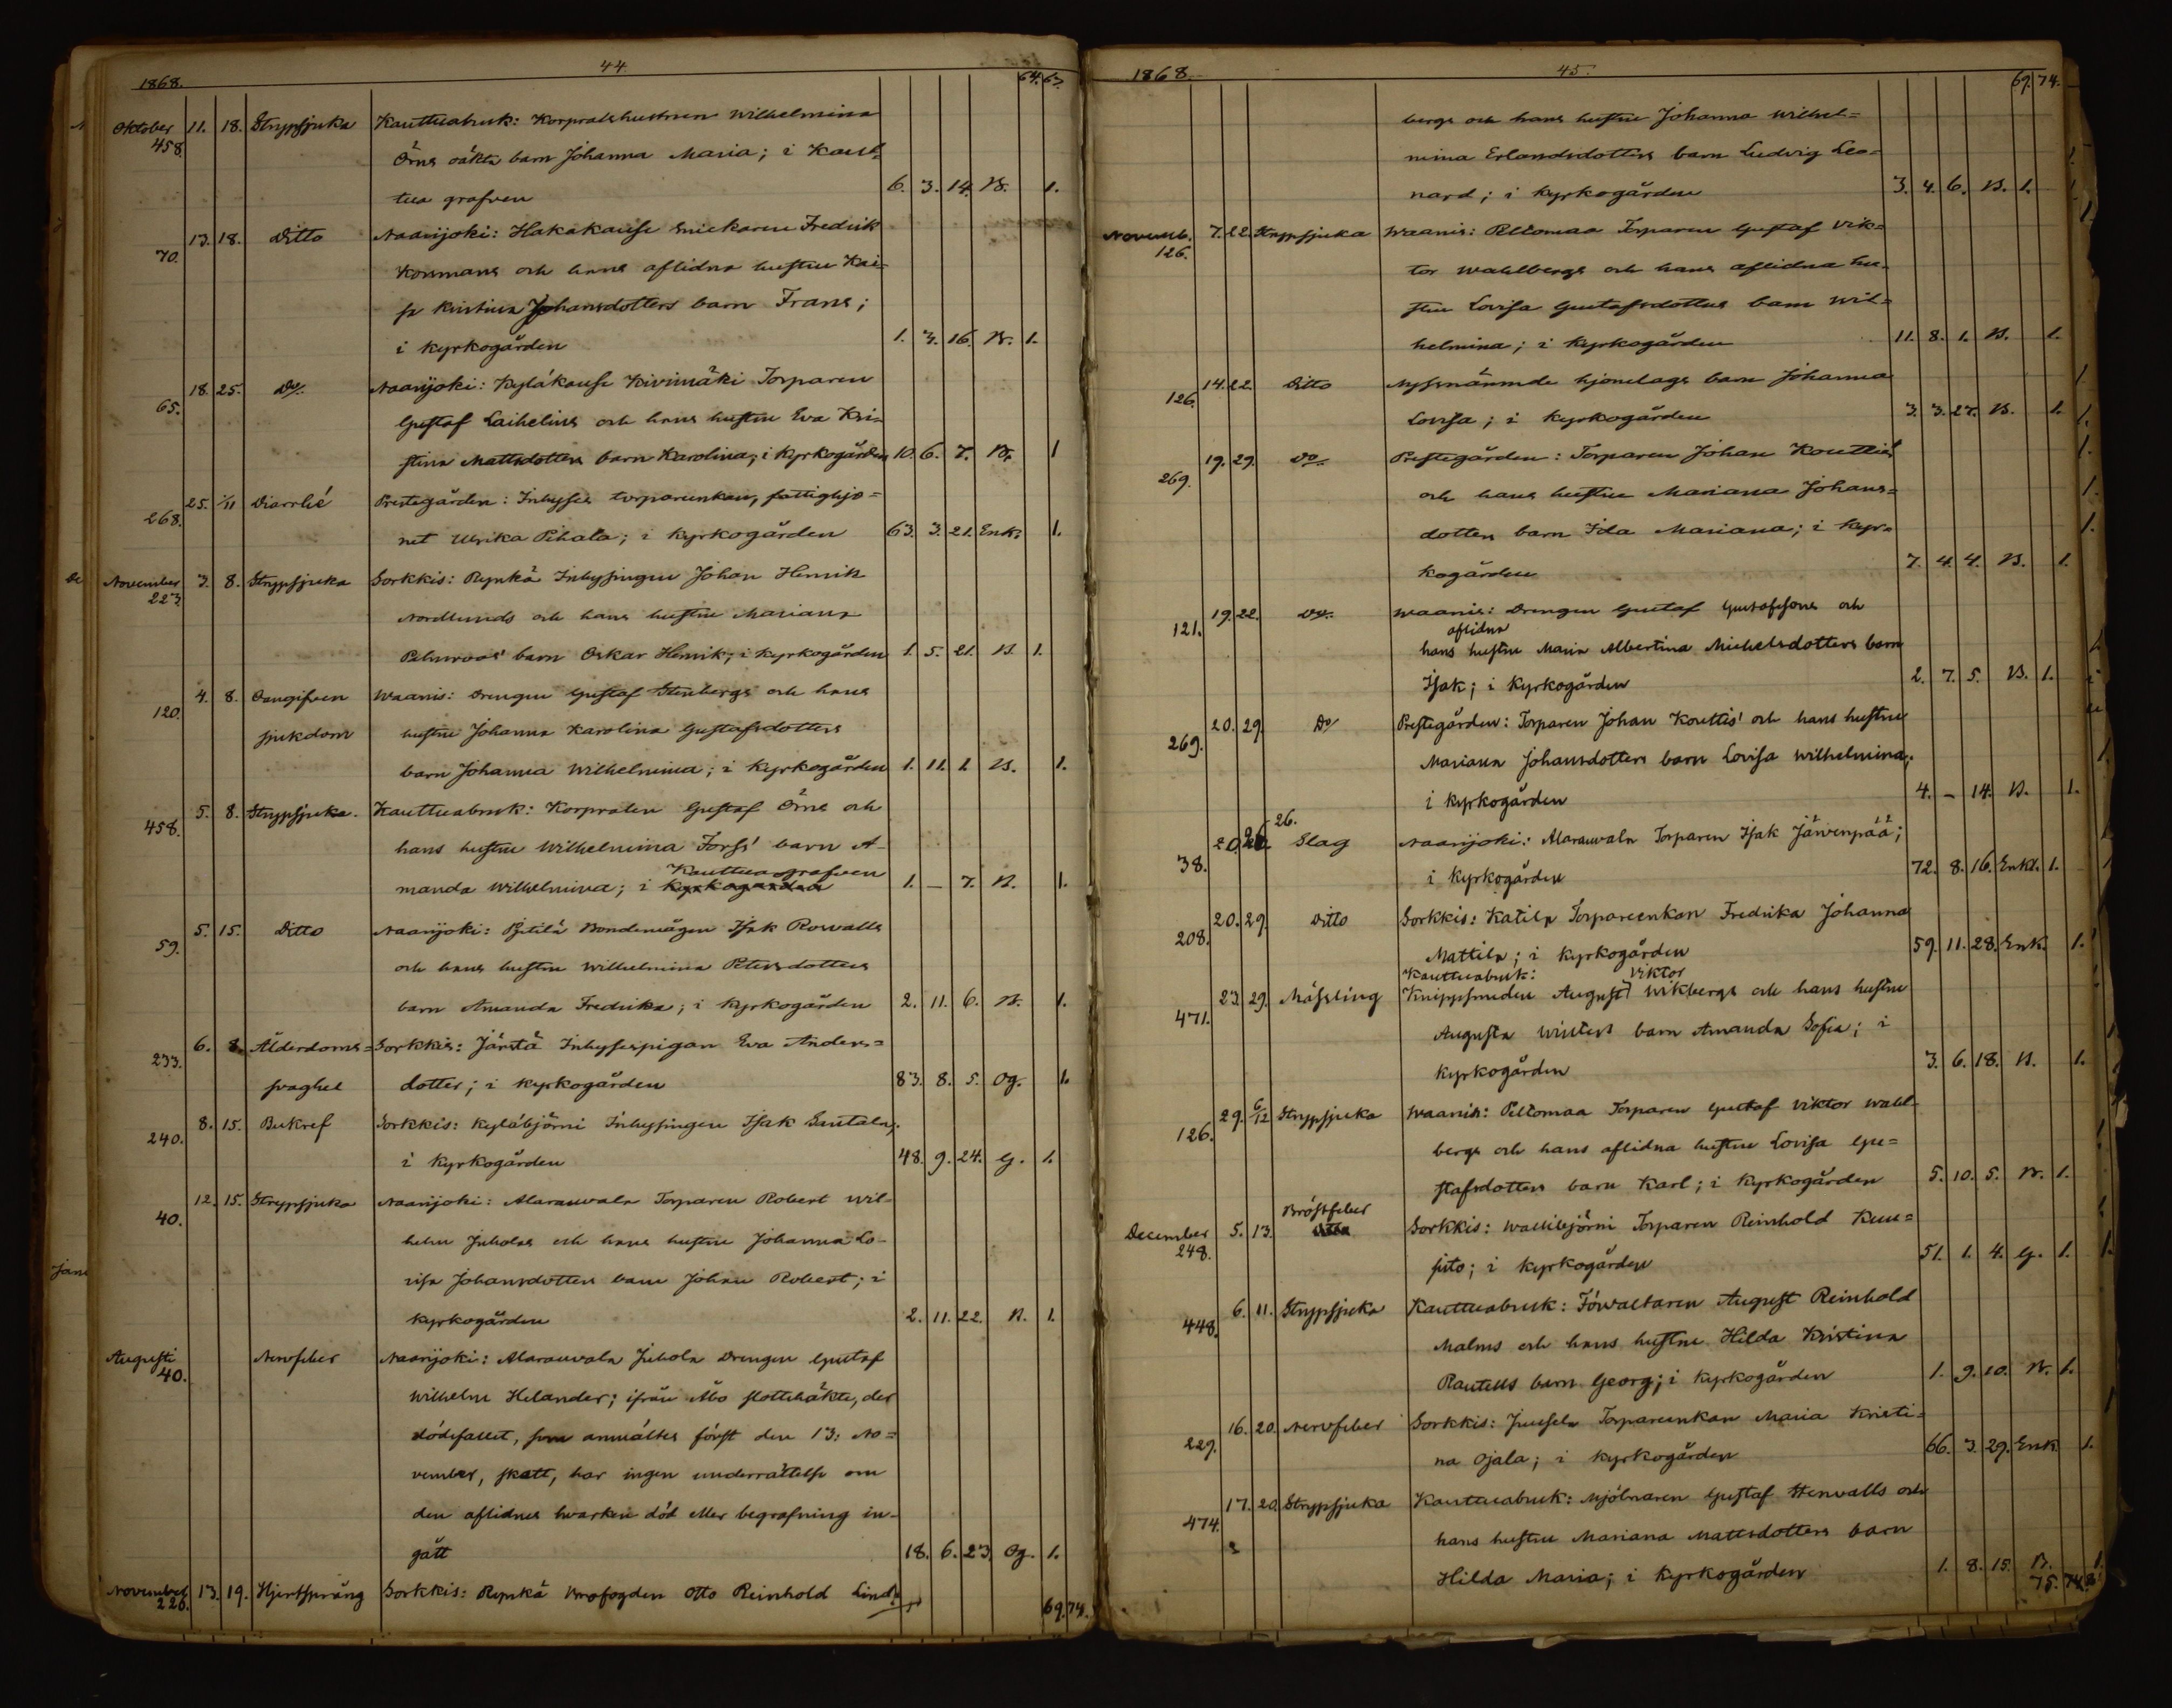 44.
1868. 64. 67.
Oktober 11. 18. Strypsjuka Kauttuabruk: Korpralshustrun Wilhelmina
458. Örns oäkta barn Johanna Maria; i Kaut=
tua grafven 6. 3. 14. B. 1.
13. 18. Ditto Naarijoki: Hakakause Snickaren Fredrik
70. Korsmans och hans aflidna hustru Kai=
sa Kristina Johansdotters barn Frans;
i kyrkogården 1. 3. 16. B. 1.
18. 25. Do Naarijoki: Kyläkause Kivimäki Torparen
65. Gustaf Laihelins och hans hustru Eva Kri=
stina Mattsdotters barn Karolina; i kyrkogården 10. 6. 7. B. 1
25. 1/11 Diarrhé Prestegården: Inhyses torpareenkan, fattighjo=
268. net Ulrika Pihala; i kyrkogården 63. 3. 21. Enk. 1.
November 3. 8. Strypsjuka Sorkkis: Rynkä Inhysingen Johan Henrik
223. Nordlunds och hans hustru Mariana
Palmroos' barn Oskar Henrik; i kyrkogården 1. 5. 21. B. 1.
4. 8. Oangifven Waanis: Drengen Gustaf Stenbergs och hans
120. sjukdom hustru Johanna Karolina Gustafsdotters
barn Johanna Wilhelmina; i kyrkogården 1. 11. 1. B. 1.
5. 8. Strypsjuka. Kauttuabruk: Korpralen Gustaf Örns och
458. hans hustru Wilhelmina Forss' barn A-
Kauttuagrafven
manda Wilhelmina; i kyrkogården 1. – 7. B. 1.
5. 15. Ditto Naarijoki: Pjitilä Bondemågen Isak Rosvalls
59. och hans hustru Wilhelmina Petersdotters
barn Amanda Fredrika; i kyrkogården 2. 11. 6. B. 1.
6. 8. Ålderdoms= Sorkkis: Järstä Inhysespigan Eva Anders=
233. svaghet dotter; i kyrkogården 83. 8. 5. Og. 1.
8. 15. Bukref Sorkkis: Kyläbjörni Inhysingen Isak Santala;
240. i kyrkogården 48. 9. 24. G. 1.
12. 15. Strypsjuka Naarijoki: Alarauvala Torparen Robert Wil-
40. helm Juholas och hans hustru Johanna Lo-
visa Johansdotters barn Johan Robert; i
kyrkogården 2. 11. 22. B. 1.
Augusti Nervfeber Naarijoki: Alarauvala Juhola Drengen Gustaf
40. Wilhelm Helander; ifrån Åbo slottshäkte, der
dödsfallet, som anmältes först den 13: No=
vember, skett, har ingen underrättelse om
den aflidnes hvarken död eller begrafning in-
gått 18. 6. 23. Og. 1.
November 13. 19. Hjertsprång Sorkkis: Rynkä Brofogden Otto Reinhold Lind=
226. 69. 74.
45.
1868. 69. 74.
bergs och hans hustru Johanna Wilhel=
mina Erlandsdotters barn Ludvig Leo=
nard; i kyrkogården 3. 4. 6. B. 1.
Novemb. 7. 22. Strypsjuka Waanis: Peltomaa Torparen Gustaf Vik=
126. tor Wahlbergs och hans aflidna hu-
stru Lovisa Gustafsdotters barn Wil=
helmina; i kyrkogården 11. 8. 1. B. 1.
14. 22. Ditto Nyssnämnde hjonelags barn Johanna
126. Lovisa; i kyrkogården 3. 3. 27. B. 1.
19. 29. Do Prestegården: Torparen Johan Kouttis'
269. och hans hustru Mariana Johans=
dotters barn Ida Mariana; i kyr=
kogården 7. 4. 4. B. 1.
19. 22. Do Waanis: Drengen Gustaf Gustafssons och
121. aflidna
hans hustru Maria Albertina Michelsdotters barn
Isak; i kyrkogården 2. 7. 5. B. 1.
20. 29. Do Prestegården: Torparen Johan Kouttis' och hans hustru
269. Mariana Johansdotters barn Lovisa Wilhelmina;
i kyrkogården 4. – 14. B. 1.
26.
20. 26. Slag Naarijoki: Alarauvala Torparen Isak Järvenpää;
38. i kyrkogården 72. 8. 16. Enkl. 1.
20. 29. Ditto Sorkkis: Katila Torpareenkan Fredrika Johanna
208. Mattila; i kyrkogården 59. 11. 28. Enk. 1.
Kauttuabruk: Viktor
23. 29. Mässling Knippsmeden August Wikbergs och hans hustru
471. Augusta Winters barn Amanda Sofia; i
kyrkogården 3. 6. 18. B. 1.
29. 6/12 Strypsjuka Waanis: Peltomaa Torparen Gustaf Viktor Wahl-
126. bergs och hans aflidna hustru Lovisa Gu=
stafsdotters barn Karl; i kyrkogården 5. 10. 5. B. 1.
Bröstfeber
December 5. 13. Ditto Sorkkis: Wallibjörni Torparen Reinhold Kuu=
248. sisto; i kyrkogården 51. 1. 4. G. 1.
6. 11. Strypsjuka Kauttuabruk: Förvaltaren August Reinhold
448. Malms och hans hustru Hilda Kristina
Rautells barn Georg; i kyrkogården 1. 9. 10. B. 1.
16. 20. Nervfeber Sorkkis: Jussela Torpareenkan Maria Kristi=
229. na Ojala; i kyrkogården 66. 3. 29. Enk 1.
17. 20. Strypsjuka Kauttuabruk: Mjölnaren Gustaf Stenvalls och
474. hans hustru Mariana Mattsdotters barn
Hilda Maria; i kyrkogården 1. 8. 15. B. 1.
75. 74.